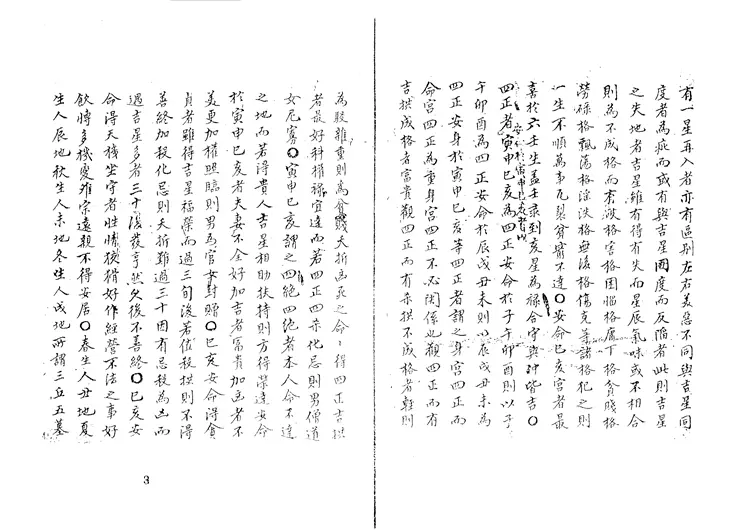 有一星再入者亦有區別左右美惡不同與吉星同
度者為疵而或有與吉星同度而反陷者此則吉星
之失地者吉星雖有得有失而星辰氣味或不相合
則為不成格而有滾波格害格困惱格廝丁格貧賤格
勞碌格飄蕩格淙泆格無後格傷克等諸格犯之則
一生不順萬事瓦裂窮窘不達○安命巳亥宮者最
喜於六壬生蓋壬录到亥星為祿合守與沖皆吉○
安命於寅申巳亥者以
四正寅申巳亥為四正安命於子午卯酉則以子
午卯酉為四正安命於辰戌丑未則以辰戌丑未為
四正安身於寅申巳亥等四正者謂之身宮四正而
命宮四正為重身宮四正不必関係也觀四正而有
吉拱成格者富貴觀四正而有杀拱不成格者輕則
為殷雖重則為貧賤夭折凶死之命○得四正吉拱
者最好科權祿宜逢而若四正四杀化忌則男僧道
女尼寡○寅申巳亥謂之四絕四絕者本人命不達
之地而若得貴人吉星相助扶持則方得榮達安命
於寅申巳亥者夫妻不全好加吉者富貴加凶者不
美更加權照臨則男為官女封贈○巳亥安命得貪
貞者雖得吉星福榮而過三旬後若值殺拱則不得
善終加殺化忌則夭折難過三十因有惡殺為凶而
遇吉星多者三十後發亨然久後不善終○巳亥安
命得天機坐守者性情狡猾好作經營不法之事好
飲時多機變难宗遠親不得安居○春生人丑地夏
生人辰地秋生人未地冬生人戌地所謂三丘五墓
3